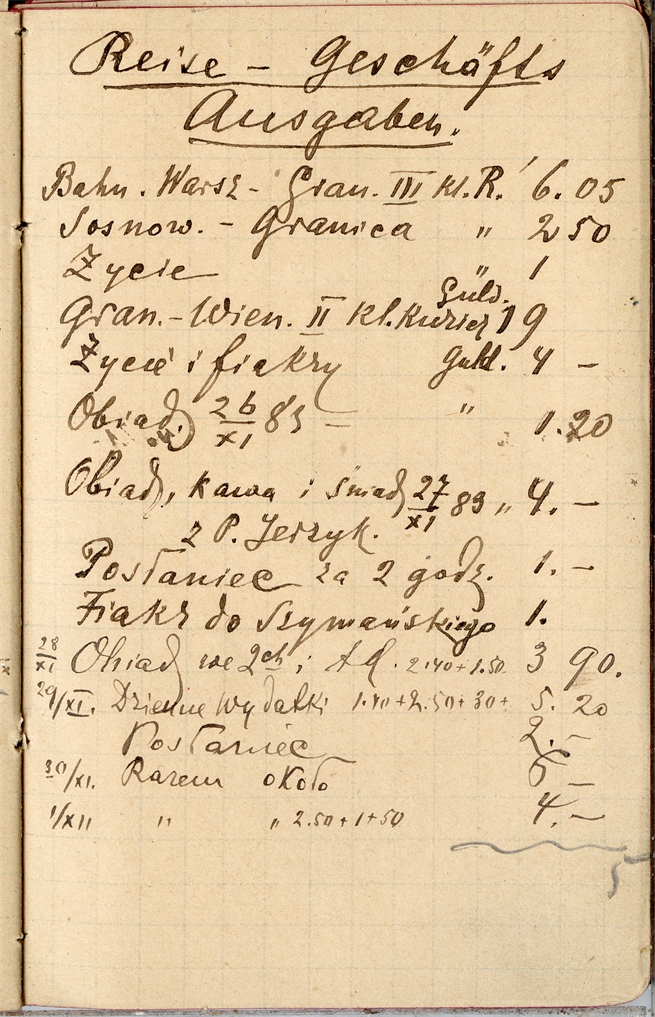 Reise - Geschäfts
Ausgaben.
Bahn. Warsz - Gran. III kl. R. 6. 05
Sosnow. - Granica " 2 50
Życie " 1
Gran. - Wien. II kl. Kurier Guld. 19
Życie i fiakry Guld. 4 -
Obiad. 26/XI 89 - " 1. 20
Obiad, kawa i śniad 27/XI 89 " 4. -
z P. Jerzyk.
Posłaniec za 2 godz. 1. -
Fiakr do Szymańskiego 1.
28/XI Obiad we 2ch i 2.40 + 1.50 3 90.
29/XI. Dzienne wydatki 1.40 + 2.50 + 30 + 5. 20
Posłaniec 2. -
30/XI. Razem około 6 -
1/XII " " 2.50 + 1 + 50 4. -
5